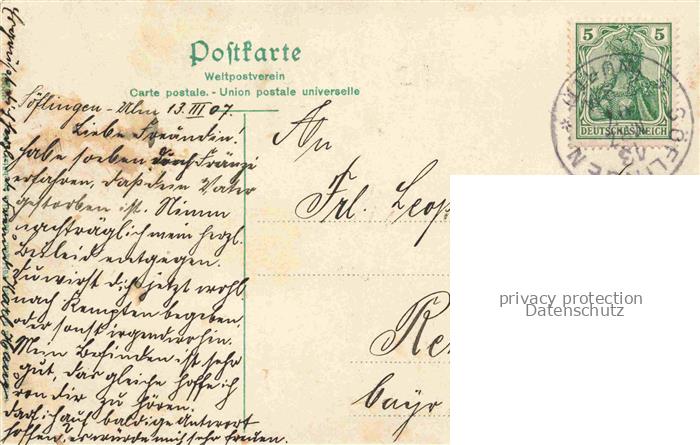 Postkarte
Weltpostverein
Carte postale. - Union postale universelle
5 5
DEUTSCHES REICH
SÖFLINGEN
Söflingen-Ulm 13.III 07.
Liebe Freündin!
habe soeben durch Fränzi
erfahren, daß dein Vater
gestorben ist. Nimm
nachträglich mein herzl.
Beileid entgegen.
Du wirst dich jetzt wohl
nach Kempten begeben
oder sonst irgendwohin.
Mein Befinden ist sehr
gut, das gleiche hoffe ich
von dir zu hören.
Darf ich auf baldige Antwort
hoffen, es würde mich sehr freuen.
An
Frl. Leop
Ke
bayr
privacy protection
Datenschutz